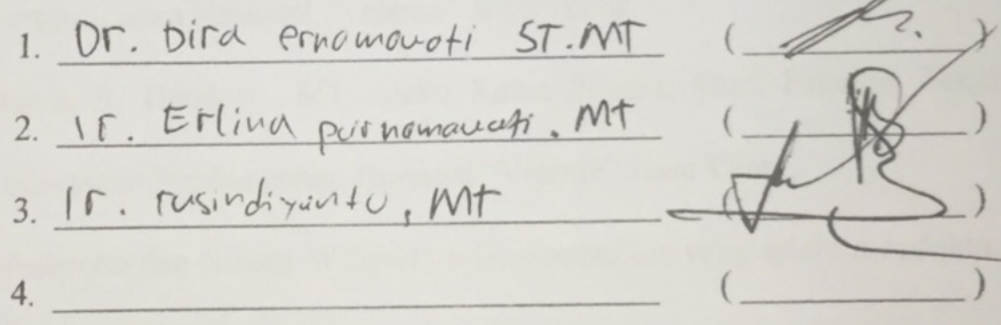 1. Dr. Dird ernomowoti ST.MT (
2. Ir. Erlina purnomawati. MT ( )
3. Ir. rusindiyanto, MT ( )
4. ( )